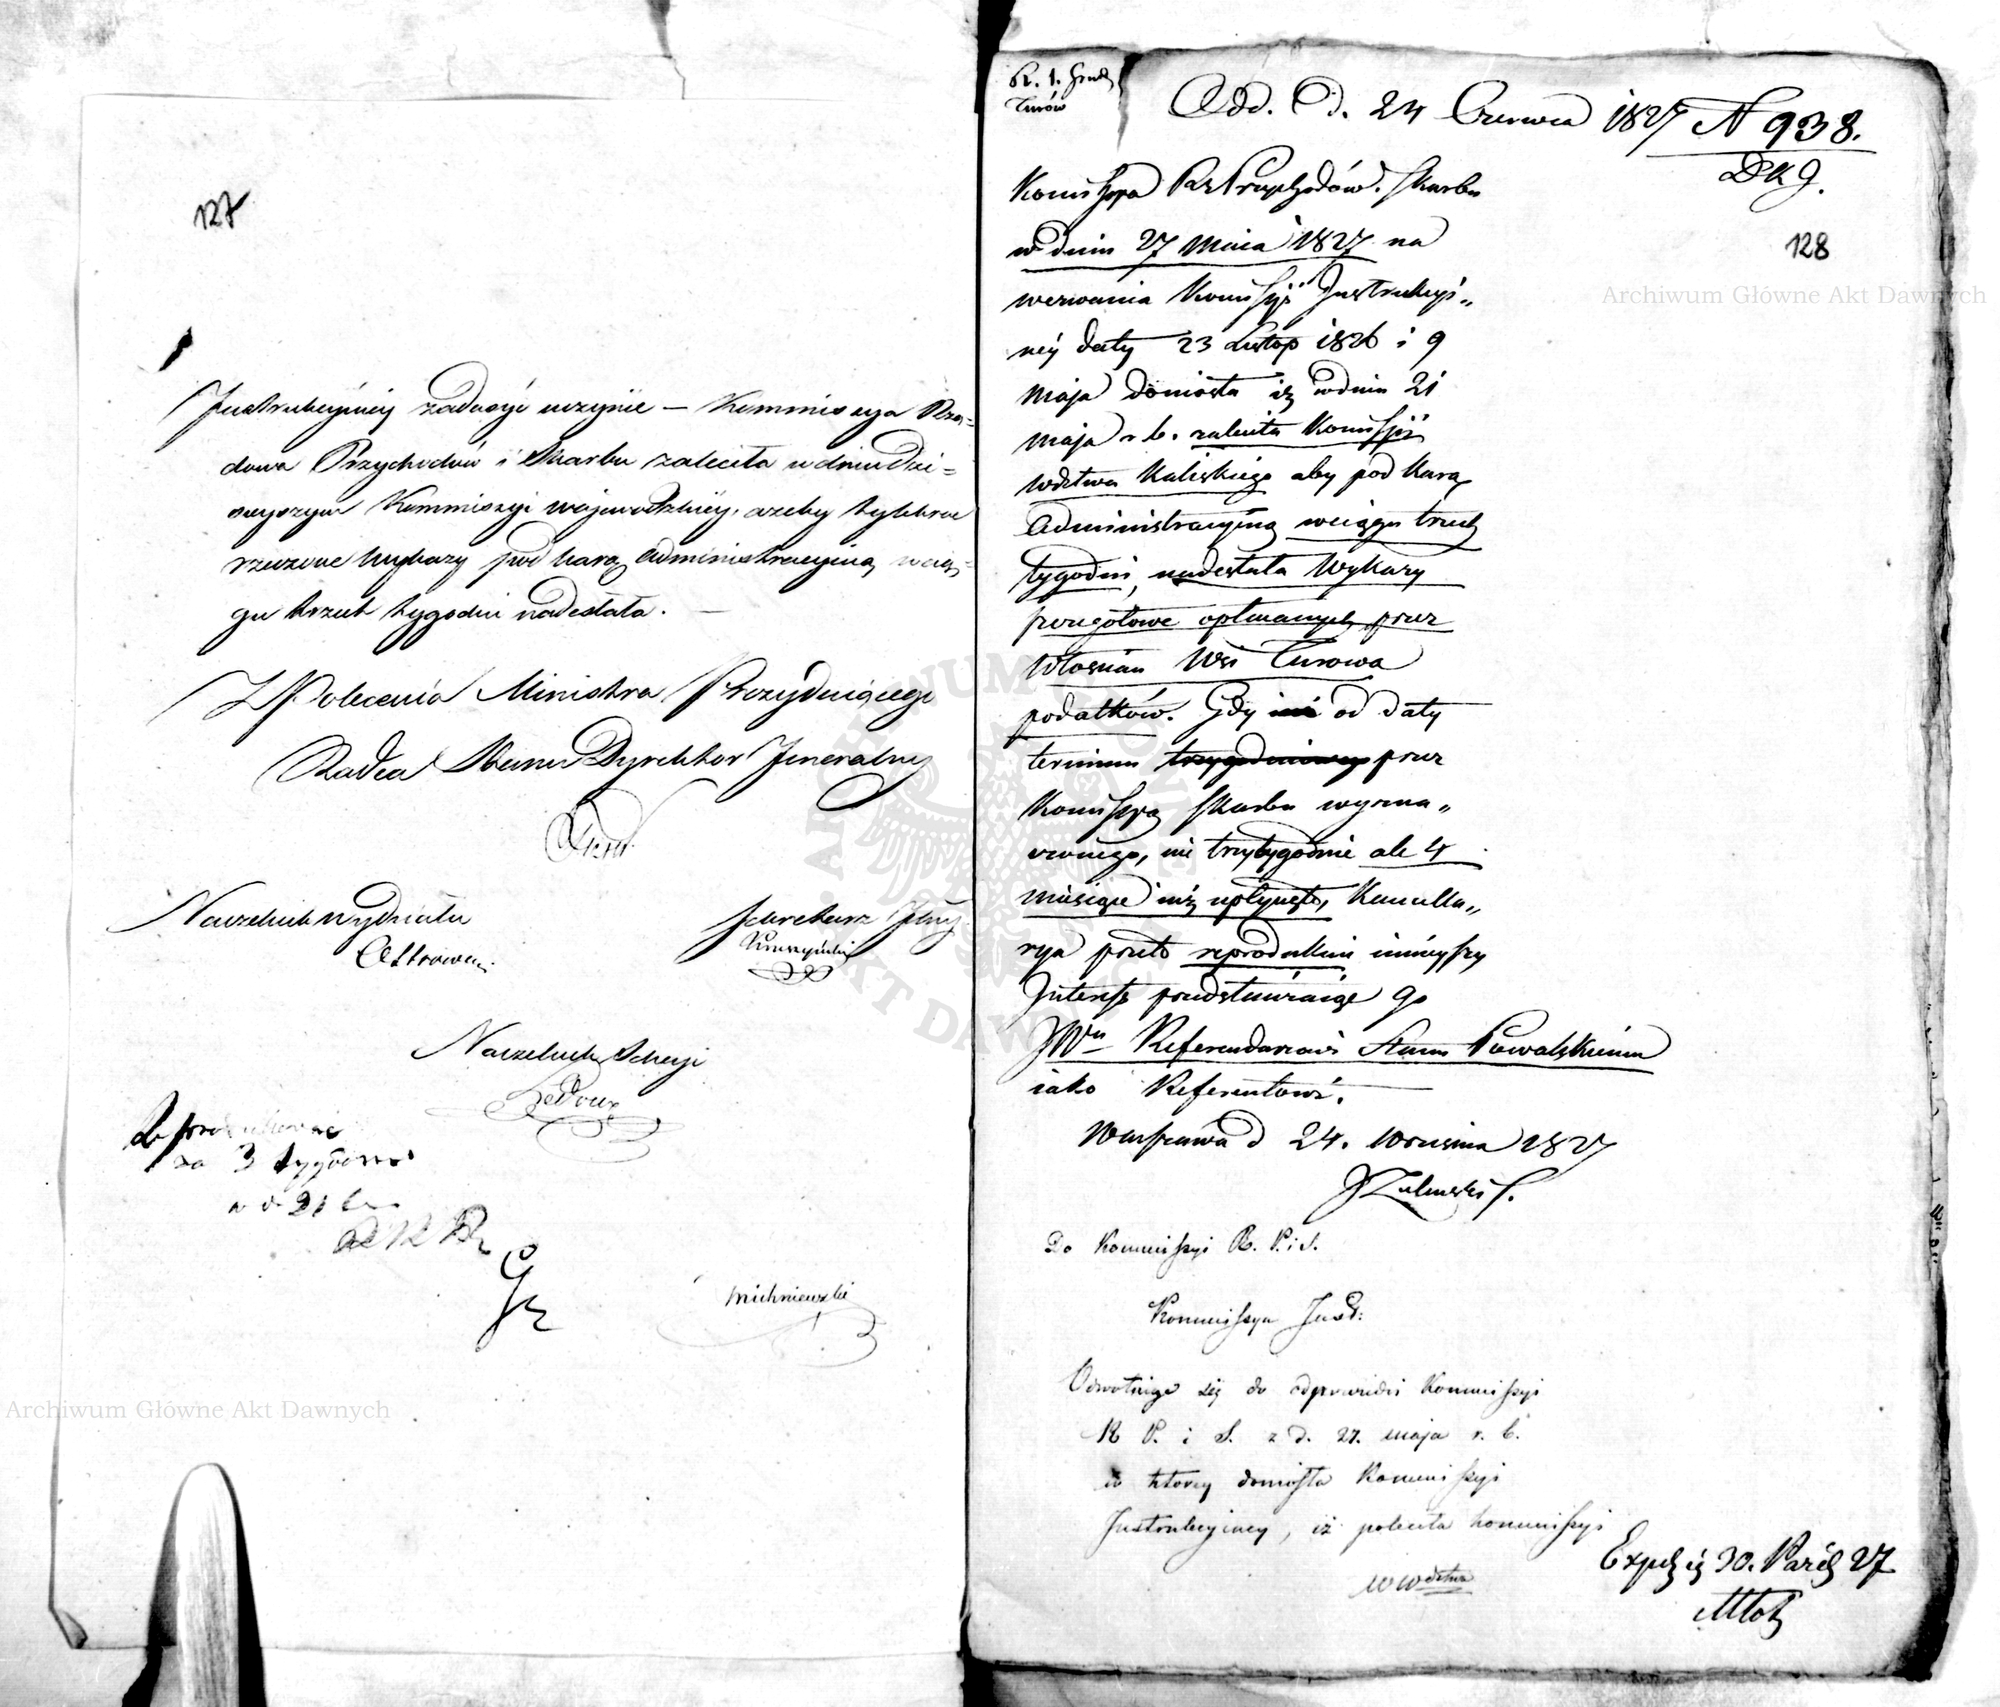 127
Instrukcyiney zadosyć uczynić — Kommissya Rzą=
dowa Przychodów i Skarbu zaleciła w dniu dzi=
sieyszym Kommissyi wojewodzkiey, ażeby tylekroć
rzeczone wykazy pod karą administracyiną w cią=
gu trzech tygodni nadesłała. —
Z Polecenia Ministra Prezyduiącego
Radca Stanu Dyrektor Jeneralny
Naczelnik Wydziału
Sekretarz Jlny
Naczelnik Sekcyi
Ledoux
Reprodukować
za 3 tygodnie
Michniewski
Archiwum Główne Akt Dawnych
Turów
Odd. d. 24 Czerwca 1827 N 938.
DKJ.
128
Archiwum Główne Akt Dawnych
Komissya Rz Przychodów. Skarbu
w dniu 27 Maia 1827 na
wezwania Komissyi Instrukcyi„
ney daty 23 Listop 1826 i 9
Maja doniosła iż w dniu 21
Maja r b. zaleciła Komissyi
Wdztwa Kaliskiego aby pod karą
administracyiną w ciągu trzech
tygodni, nadesłała Wykazy
szczegółowe opłacanych przez
Włościan Wsi Turowa
podatków. Gdy od daty
terminu trzygodniowego przez
Komissyą Skarbu wyzna„
czonego, nie trzytygodnie ale 4
miesiące iuż upłynęło, Kancella„
rya przeto reprodukuie ninieyszy
Interess przedstawiaiąc go
JWu Referendarzowi Stanu Powalskiemu
iako Referentowi.
Warszawa d 24. Września 1827
JZalewski S.
Do Kommissyi R. P. i S.
Kommissya Inst:
Odwołuiąc się do odpowiedzi Kommissyi
R P. i S. z d. 27. maja r. b.
w ktorey doniosła Kommissyi
Instrukcyiney, iż poleciła kommissyi
W Wdztwa
Exped ię 30. Paźd 27